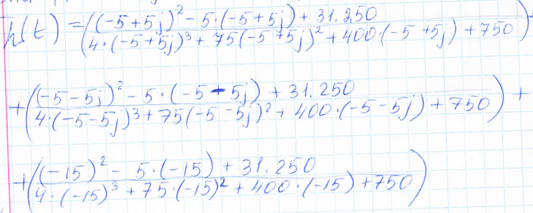 h(t) = ((-5+5j)² - 5·(-5+5j) + 31.250
(4·(-5+5j)³ + 75(-5+5j)² + 400·(-5+5j) + 750) +
+((-5-5j)² - 5·(-5-5j) + 31.250
(4·(-5-5j)³ + 75(-5-5j)² + 400·(-5-5j) + 750) +
+((-15)² - 5·(-15) + 31.250
4·(-15)³ + 75·(-15)² + 400·(-15) + 750)